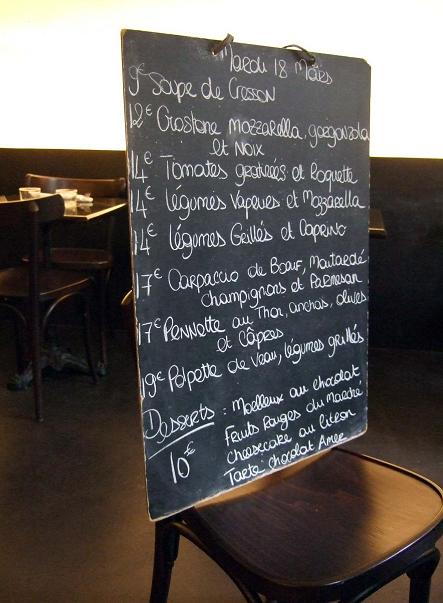 Mardi 18 Mars
9€ Soupe de Cresson
12€ Crostone mozzarella, gorgonzola
et Noix
14€ Tomates gratinées et Roquette
14€ légumes Vapeurs et Mozzarella
14€ légumes Grillés et Caprino
17€ Carpaccio de Bœuf, Moutarde
champignons et Parmesan
17€ Pennette au Thon, anchois, olives
et Câpres
19€ Polpette de Veau, légumes grillés
Desserts : Moelleux au chocolat
Fruits Rouges du Marché
10€ cheesecake au citron
Tarte chocolat Amer